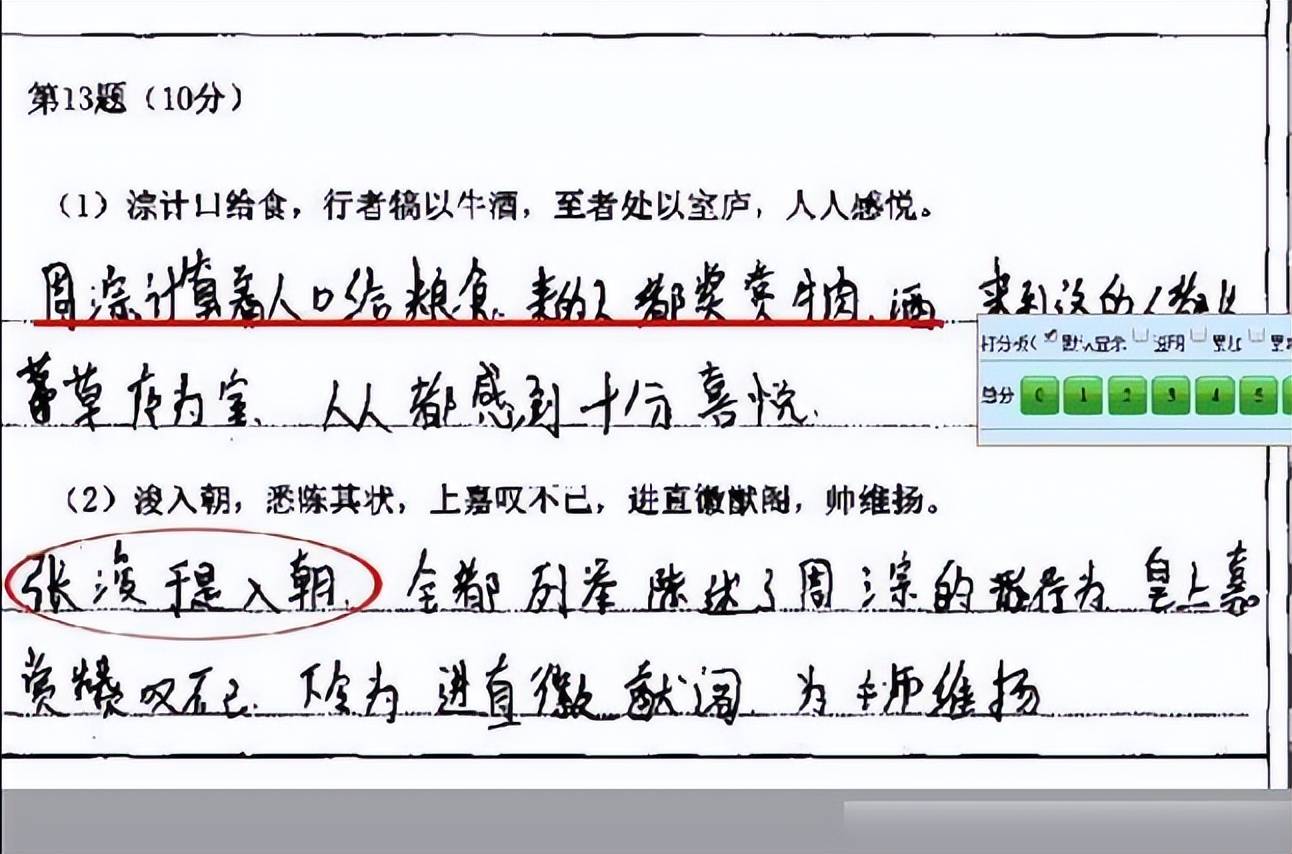 第13题（10分）
（1）淙计口给食，行者犒以牛酒，至者处以室庐，人人感悦。
周淙计算着人口给粮食. 来的人都奖赏牛肉.酒 来到这的人
打分板 默认显示 透明
草房为室. 人人都感到十分喜悦.
总分 0 1 2 3 4 5
（2）浚入朝，悉陈其状，上嘉叹不已，进直徽猷阁，帅维扬。
张浚于是入朝. 全都列举陈述了周淙的行为 皇上嘉
赏 叹不已. 任命为 进直徽猷阁. 为 帅维扬